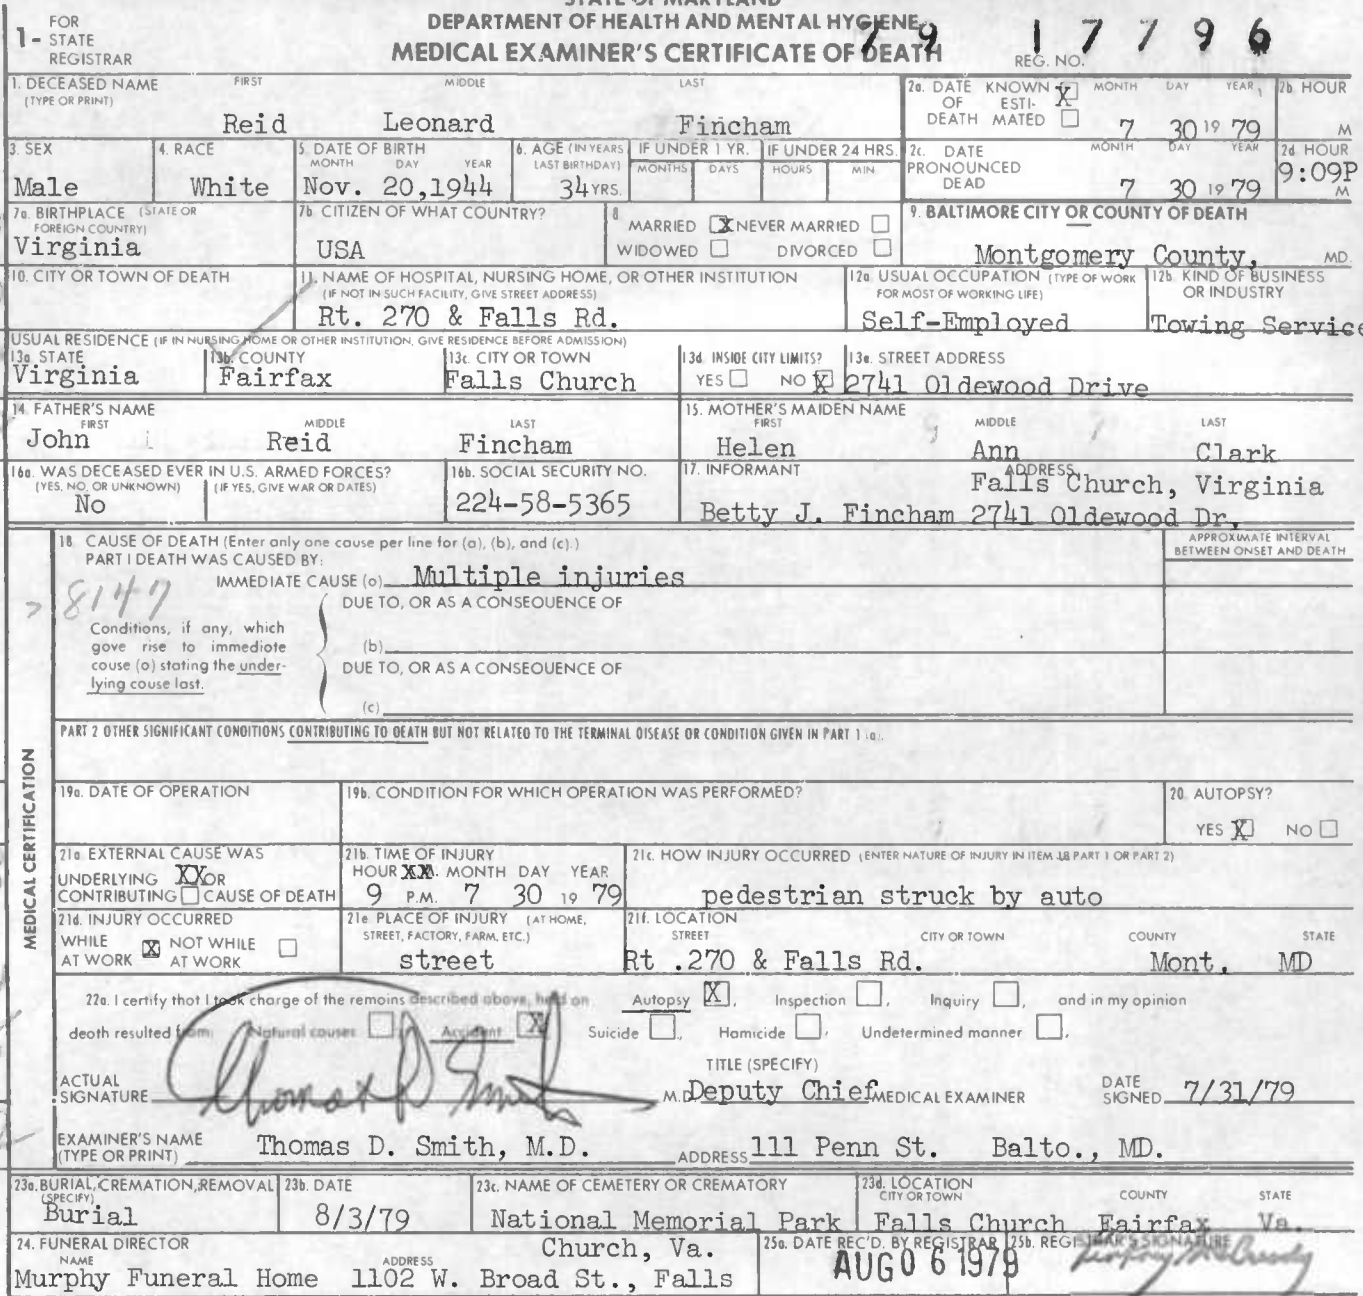 STATE OF MARYLAND
DEPARTMENT OF HEALTH AND MENTAL HYGIENE
MEDICAL EXAMINER'S CERTIFICATE OF DEATH
1- FOR STATE REGISTRAR
79 17796
REG. NO.
1. DECEASED NAME (TYPE OR PRINT) FIRST MIDDLE LAST
Reid Leonard Fincham
2a. DATE OF DEATH KNOWN X ESTIMATED MONTH DAY YEAR
7 30 19 79
2b. HOUR
M
3. SEX
Male
4. RACE
White
5. DATE OF BIRTH MONTH DAY YEAR
Nov. 20,1944
6. AGE (IN YEARS LAST BIRTHDAY)
34 YRS.
IF UNDER 1 YR. MONTHS DAYS
IF UNDER 24 HRS. HOURS MIN
2c. DATE PRONOUNCED DEAD MONTH DAY YEAR
7 30 19 79
2d HOUR
9:09P M
7a. BIRTHPLACE (STATE OR FOREIGN COUNTRY)
Virginia
7b CITIZEN OF WHAT COUNTRY?
USA
8 MARRIED X NEVER MARRIED
WIDOWED DIVORCED
9. BALTIMORE CITY OR COUNTY OF DEATH
Montgomery County, MD.
10. CITY OR TOWN OF DEATH
11. NAME OF HOSPITAL, NURSING HOME, OR OTHER INSTITUTION
(IF NOT IN SUCH FACILITY, GIVE STREET ADDRESS)
Rt. 270 & Falls Rd.
12a. USUAL OCCUPATION (TYPE OF WORK FOR MOST OF WORKING LIFE)
Self-Employed
12b. KIND OF BUSINESS OR INDUSTRY
Towing Service
USUAL RESIDENCE (IF IN NURSING HOME OR OTHER INSTITUTION, GIVE RESIDENCE BEFORE ADMISSION)
13a. STATE
Virginia
13b. COUNTY
Fairfax
13c. CITY OR TOWN
Falls Church
13d. INSIDE CITY LIMITS?
YES NO X
13e. STREET ADDRESS
2741 Oldewood Drive
14. FATHER'S NAME FIRST MIDDLE LAST
John Reid Fincham
15. MOTHER'S MAIDEN NAME FIRST MIDDLE LAST
Helen Ann Clark
16a. WAS DECEASED EVER IN U.S. ARMED FORCES?
(YES, NO, OR UNKNOWN) (IF YES, GIVE WAR OR DATES)
No
16b. SOCIAL SECURITY NO.
224-58-5365
17. INFORMANT ADDRESS
Falls Church, Virginia
Betty J. Fincham 2741 Oldewood Dr.
18. CAUSE OF DEATH (Enter only one cause per line for (a), (b), and (c).)
PART I DEATH WAS CAUSED BY:
APPROXIMATE INTERVAL BETWEEN ONSET AND DEATH
IMMEDIATE CAUSE (a) Multiple injuries
8147
DUE TO, OR AS A CONSEQUENCE OF
Conditions, if any, which gave rise to immediate cause (a) stating the underlying cause last.
(b)
DUE TO, OR AS A CONSEQUENCE OF
(c)
PART 2 OTHER SIGNIFICANT CONDITIONS CONTRIBUTING TO DEATH BUT NOT RELATED TO THE TERMINAL DISEASE OR CONDITION GIVEN IN PART 1 (a).
MEDICAL CERTIFICATION
19a. DATE OF OPERATION
19b. CONDITION FOR WHICH OPERATION WAS PERFORMED?
20. AUTOPSY?
YES X NO
21a. EXTERNAL CAUSE WAS
UNDERLYING XX OR
CONTRIBUTING CAUSE OF DEATH
21b. TIME OF INJURY
HOUR XX. MONTH DAY YEAR
9 P.M. 7 30 19 79
21c. HOW INJURY OCCURRED (ENTER NATURE OF INJURY IN ITEM 18 PART 1 OR PART 2)
pedestrian struck by auto
21d. INJURY OCCURRED
WHILE AT WORK X NOT WHILE AT WORK
21e. PLACE OF INJURY (AT HOME, STREET, FACTORY, FARM, ETC.)
street
21f. LOCATION
STREET CITY OR TOWN COUNTY STATE
Rt .270 & Falls Rd. Mont. MD
22a. I certify that I took charge of the remains described above, held an Autopsy X, Inspection, Inquiry, and in my opinion
death resulted from: Natural causes Accident X Suicide, Homicide, Undetermined manner,
ACTUAL SIGNATURE Thomas D Smith M.D.
TITLE (SPECIFY)
Deputy Chief MEDICAL EXAMINER
DATE SIGNED 7/31/79
EXAMINER'S NAME (TYPE OR PRINT) Thomas D. Smith, M.D.
ADDRESS 111 Penn St. Balto., MD.
23a. BURIAL, CREMATION, REMOVAL (SPECIFY)
Burial
23b. DATE
8/3/79
23c. NAME OF CEMETERY OR CREMATORY
National Memorial Park
23d. LOCATION CITY OR TOWN COUNTY STATE
Falls Church Fairfax Va.
24. FUNERAL DIRECTOR NAME ADDRESS
Church, Va.
Murphy Funeral Home 1102 W. Broad St., Falls
25a. DATE REC'D. BY REGISTRAR
AUG 06 1979
25b. REGISTRAR'S SIGNATURE